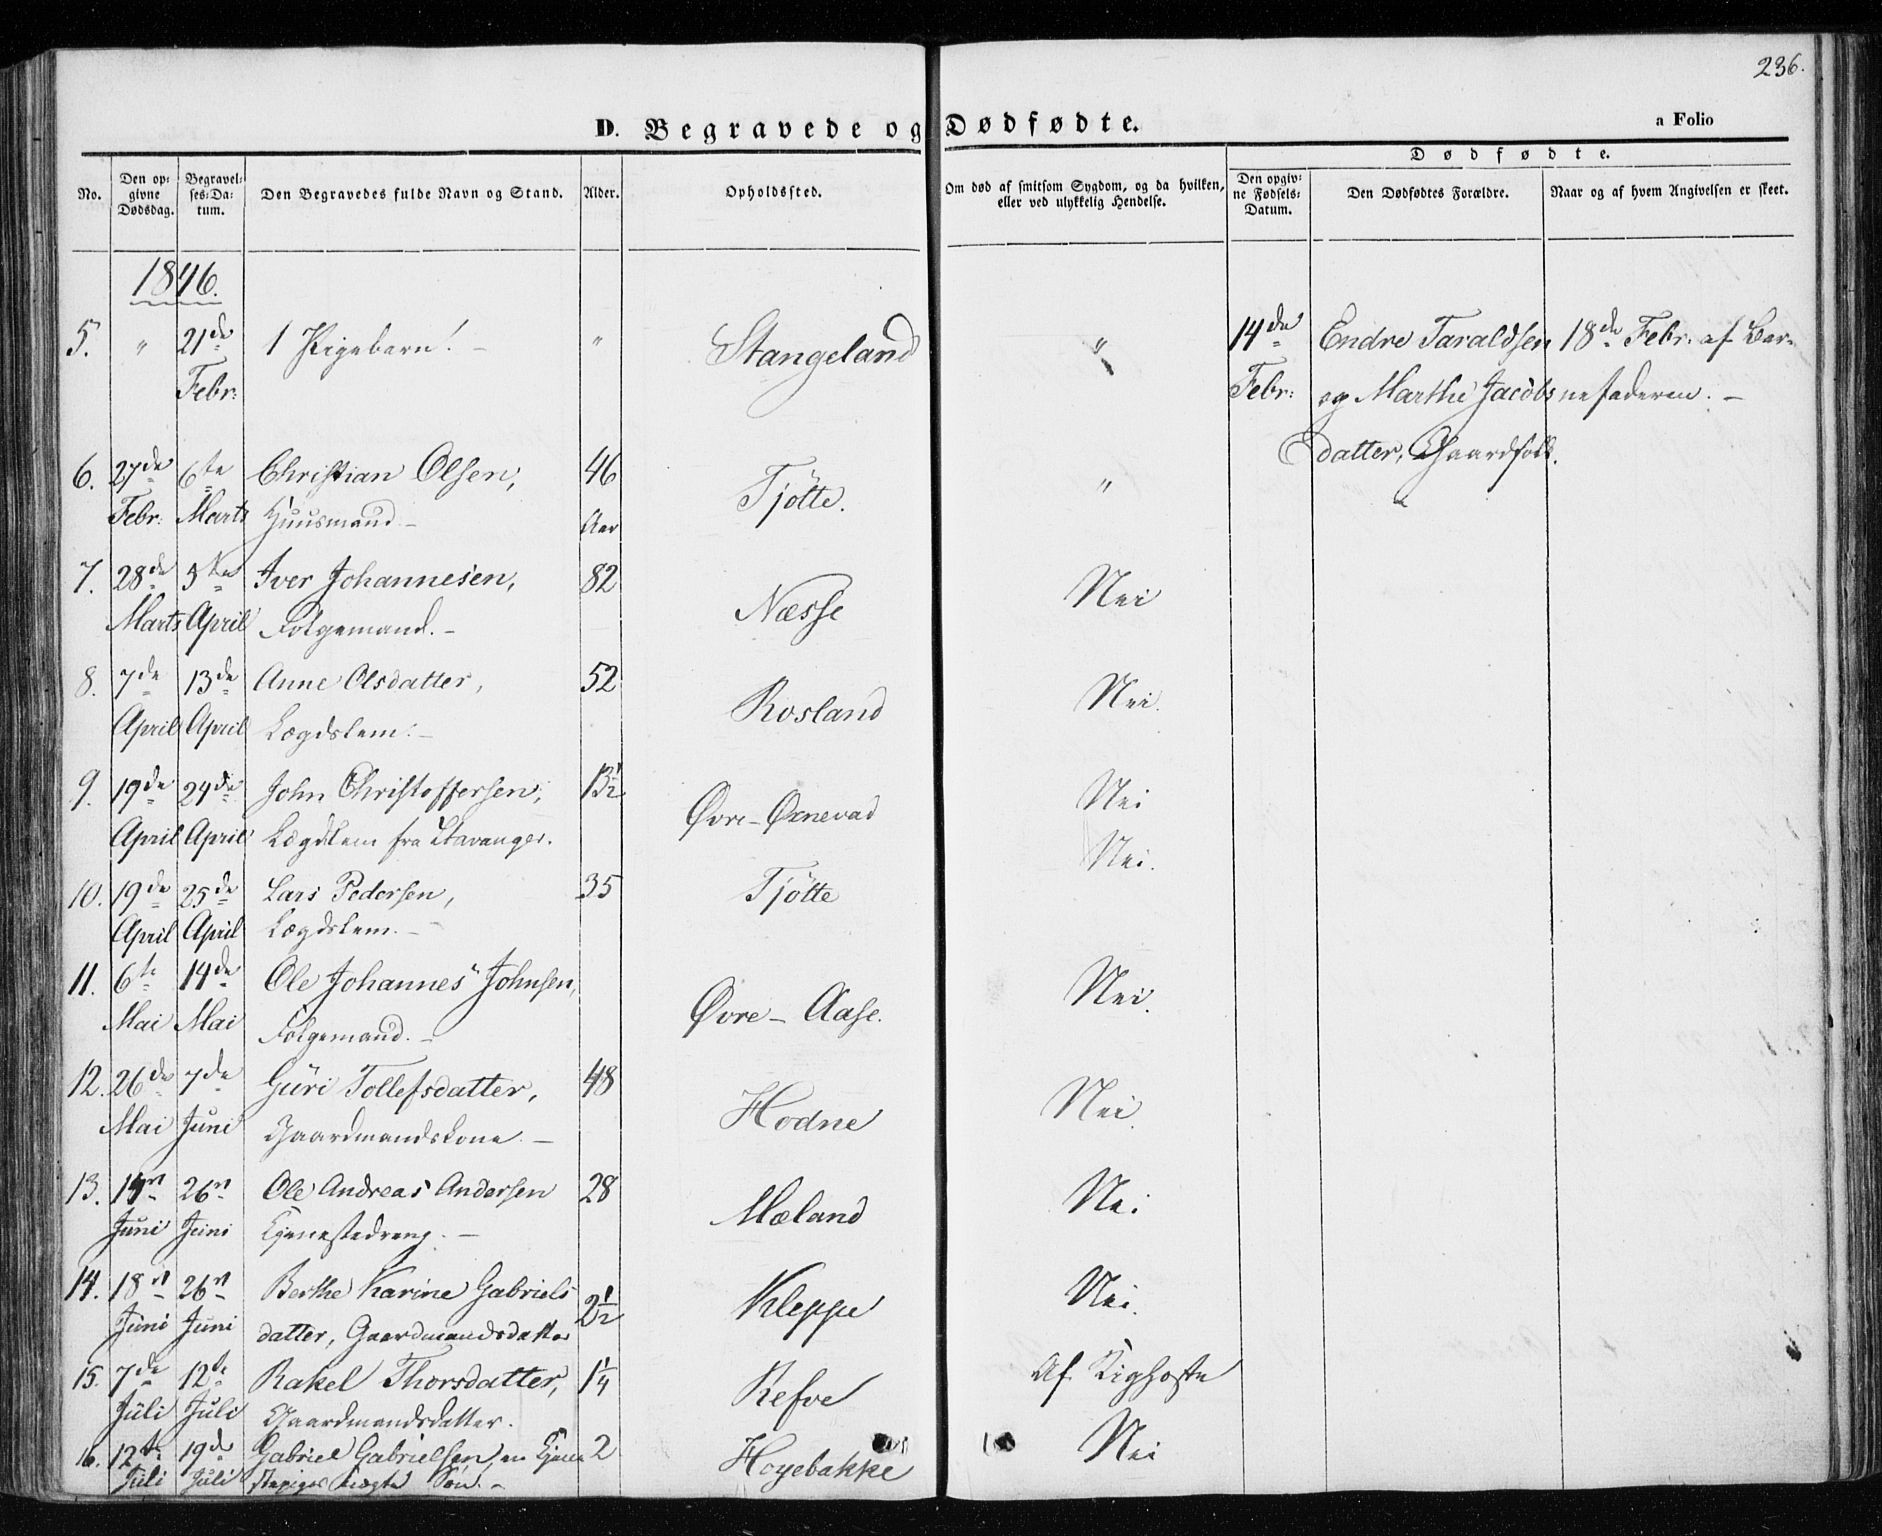 236.
D. Begravede og Dødfødte.
a Folio
No.
Den opgivne Dødsdag.
Begravelses-Datum.
Den Begravedes fulde Navn og Stand.
Alder.
Opholdssted.
Om død af smitsom Sygdom, og da hvilken, eller ved ulykkelig Hendelse.
Dødfødte.
Den opgivne Fødsels-Datum.
Den Dødfødtes Forældre.
Naar og af hvem Angivelsen er skeet.
1846.
5. " 21de 1 Pigebarn! – " Stangeland " 14de Endre Taraldsen 18de Febr. af Bar-
Febr: Febr: og Marthe Jacobs nefaderen. –
datter, Gaardfolk.
6. 27de 6te Christian Olsen, 46 Tjötte. " "
Febr: Marts Huusmand – Aar
7. 28de 5te Iver Johannesen, 82 Næsse Nei
Marts April Folgemand. –
8. 7de 13de Anne Olsdatter, 52 Rosland Nei.
April April Lægdslem. –
9. 19de 24de John Christoffersen, 13½ Øvre-Øxnevad Nei
April April Lægdslem fra Stavanger. Nei.
10. 19de 25de Lars Pedersen, 35 Tjötte
April April Lægdslem. –
11. 6te 14de Ole Johannes Johnsen, Øvre-Aase. Nei.
Mai Mai Folgemand. –
12. 26de 7de Güri Tollefsdatter, 48 Hodne Nei.
Mai Juni Gaardmandskone. –
13. 26n Ole Andreas Andersen 28 Mæland Nei
Juni Juni Tjenestedreng. –
14. 18n 26n Berthe Karine Gabriels 2½ Kleppe Nei.
Juni Juni datter, Gaardmandsdatter
15. 7de 12te Rakel Thorsdatter, 1¼ Refve Af Kighoste
Juli Juli Gaardmandsdatter.
16. 12te 19de Gabriel Gabrielsen, en Tjene 2 Hoyebakke Nei
Juli Juli stepiges uægte Søn. –